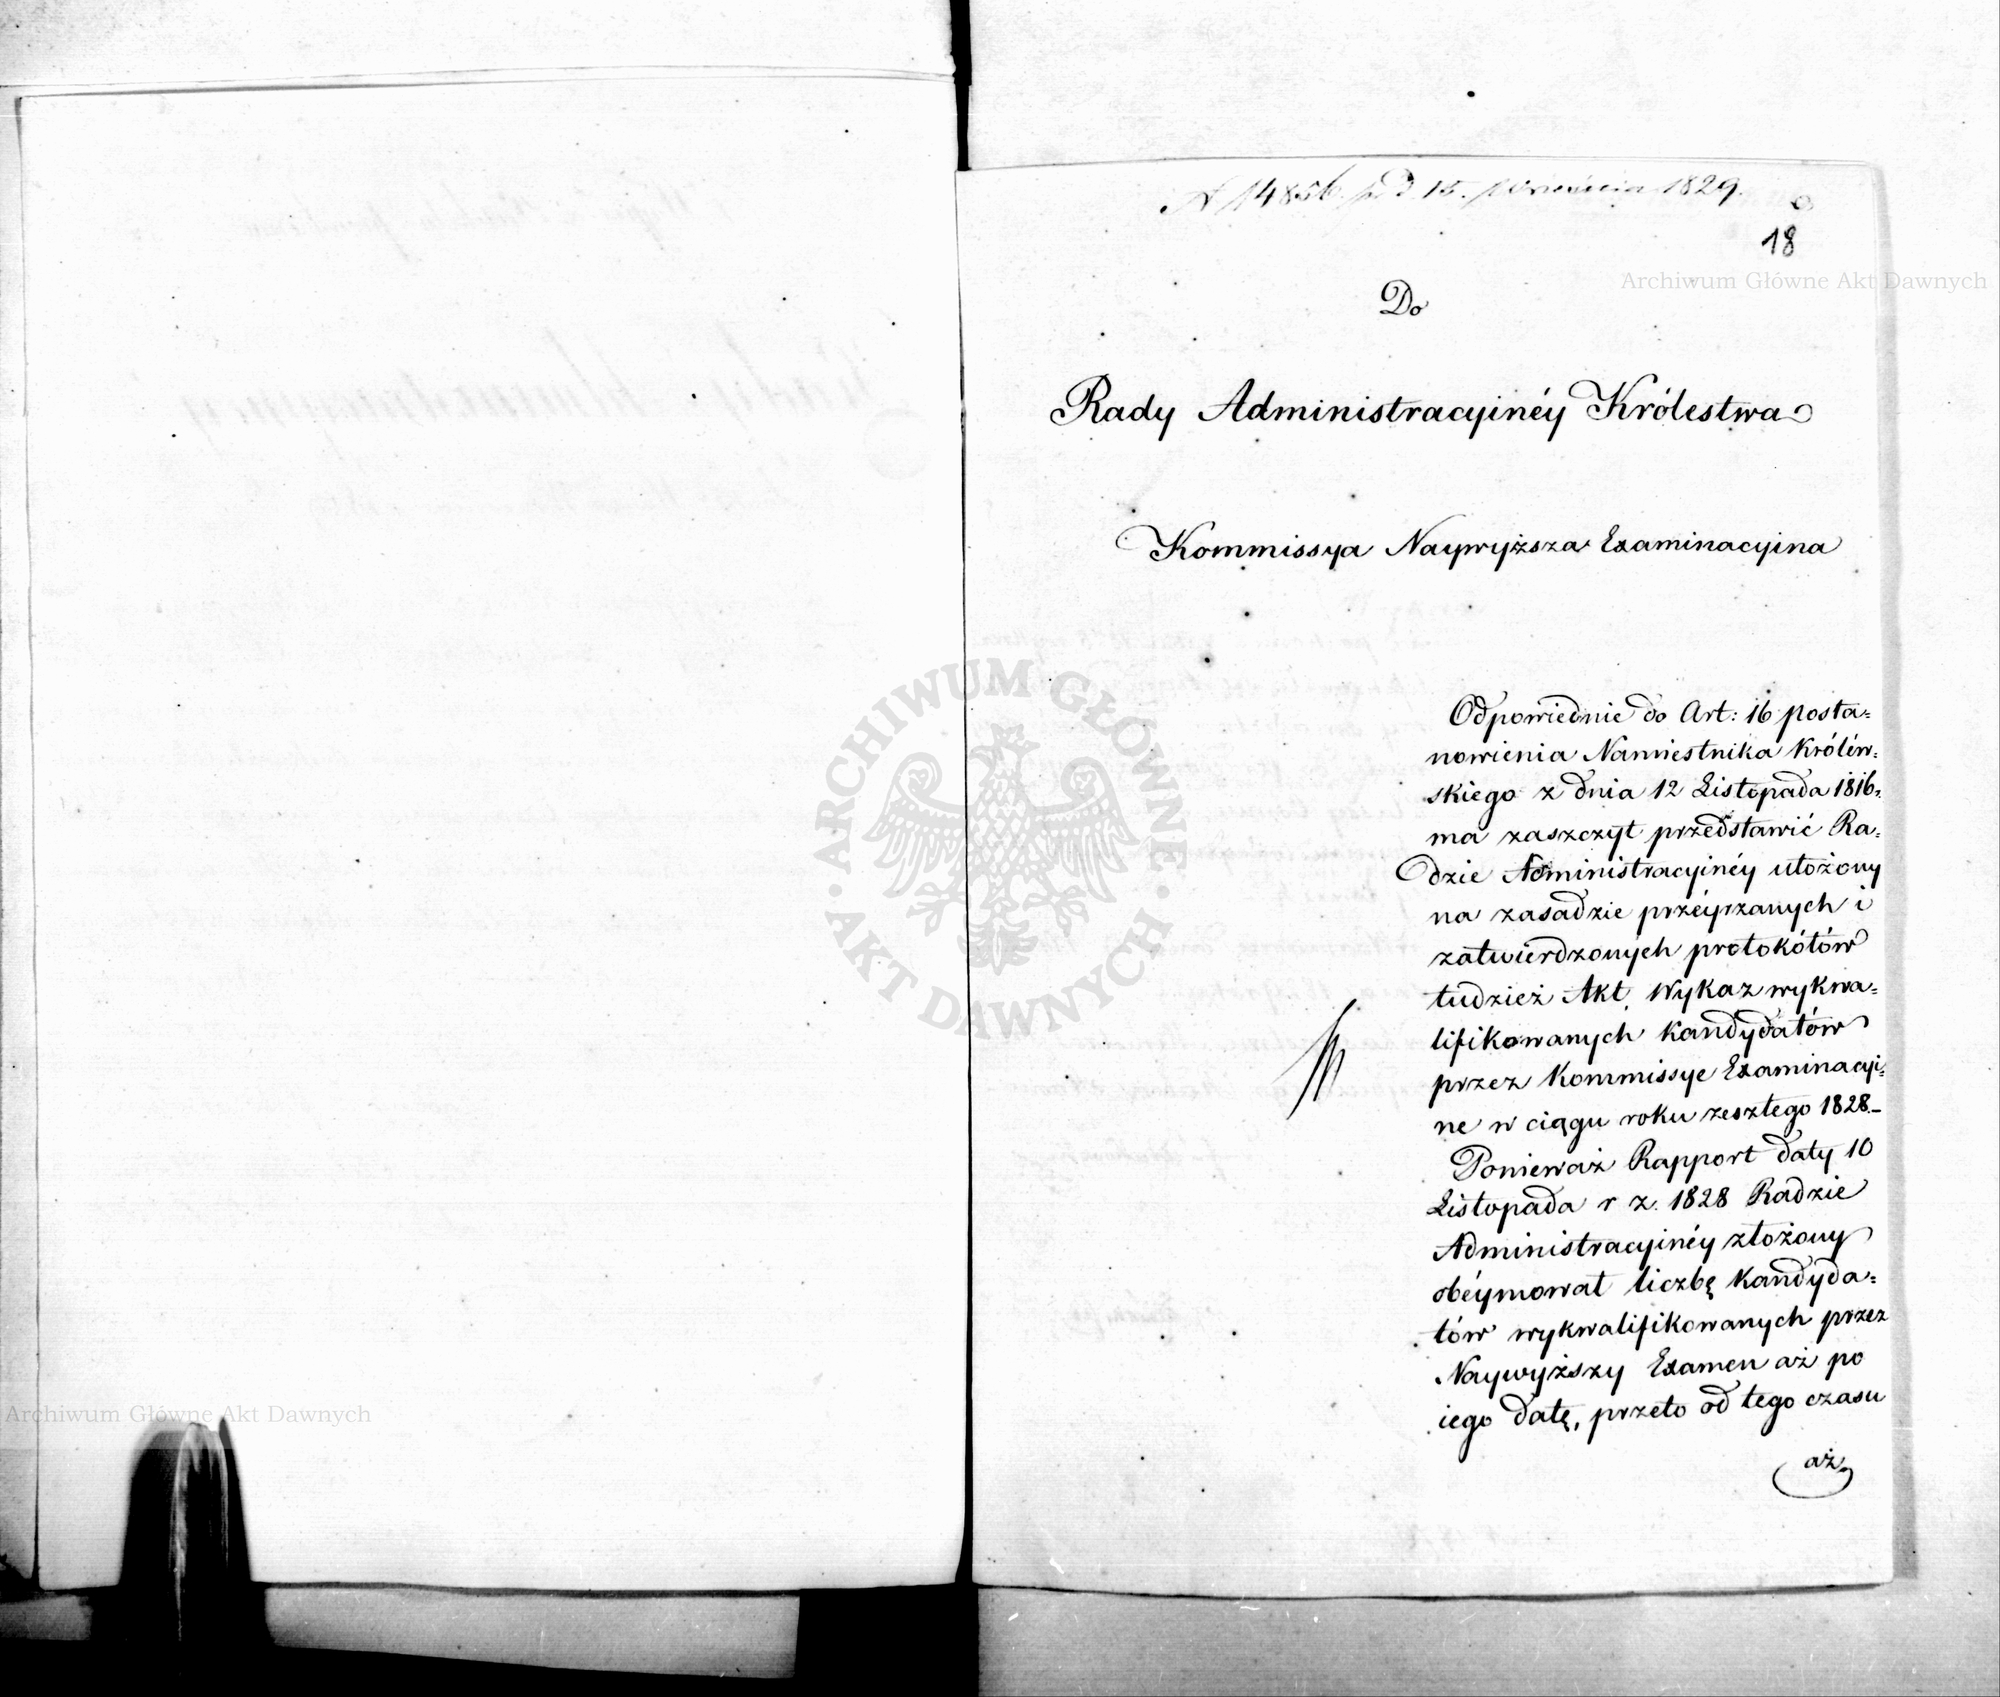 N 14856. pd 15. Września 1829.
18
Do
Rady Administracyinéy Królestwa
Kommissya Naywyższa Examinacyina
Odpowiednie do Art: 16 posta=
nowienia Namiestnika Królew=
skiego z dnia 12 Listopada 1816.
ma zaszczyt przedstawić Ra=
dzie Administracyinéy ułożony
na zasadzie przéyrzanych i
zatwierdzonych protokółów
tudzież Akt, Wykaz wykwa=
lifikowanych kandydatów
przez Kommissye Examinacyi=
ne w ciągu roku zeszłego 1828.-
Ponieważ Rapport daty 10
Listopada r z. 1828 Radzie
Administracyinéy złożony
obéymował liczbę Kandyda=
tów wykwalifikowanych przez
Naywyższy Examen aż po
iego datę, przeto od tego czasu
aż
Archiwum Główne Akt Dawnych
ARCHIWUM GŁÓWNE · AKT DAWNYCH ·
Archiwum Główne Akt Dawnych